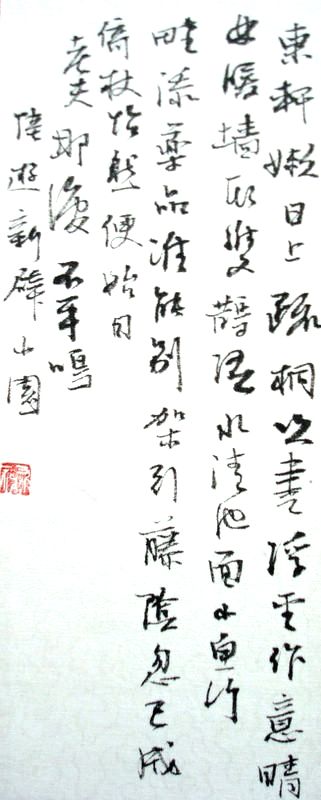 東軒嫩日上疏桐吹盡浮雲作意晴
暖墙頭雙鵲語水清池面小魚行
畦添藥品誰能別架引藤陰忽已成
倚杖悠然便終日
老夫那復不平鳴
陸遊新辟小園